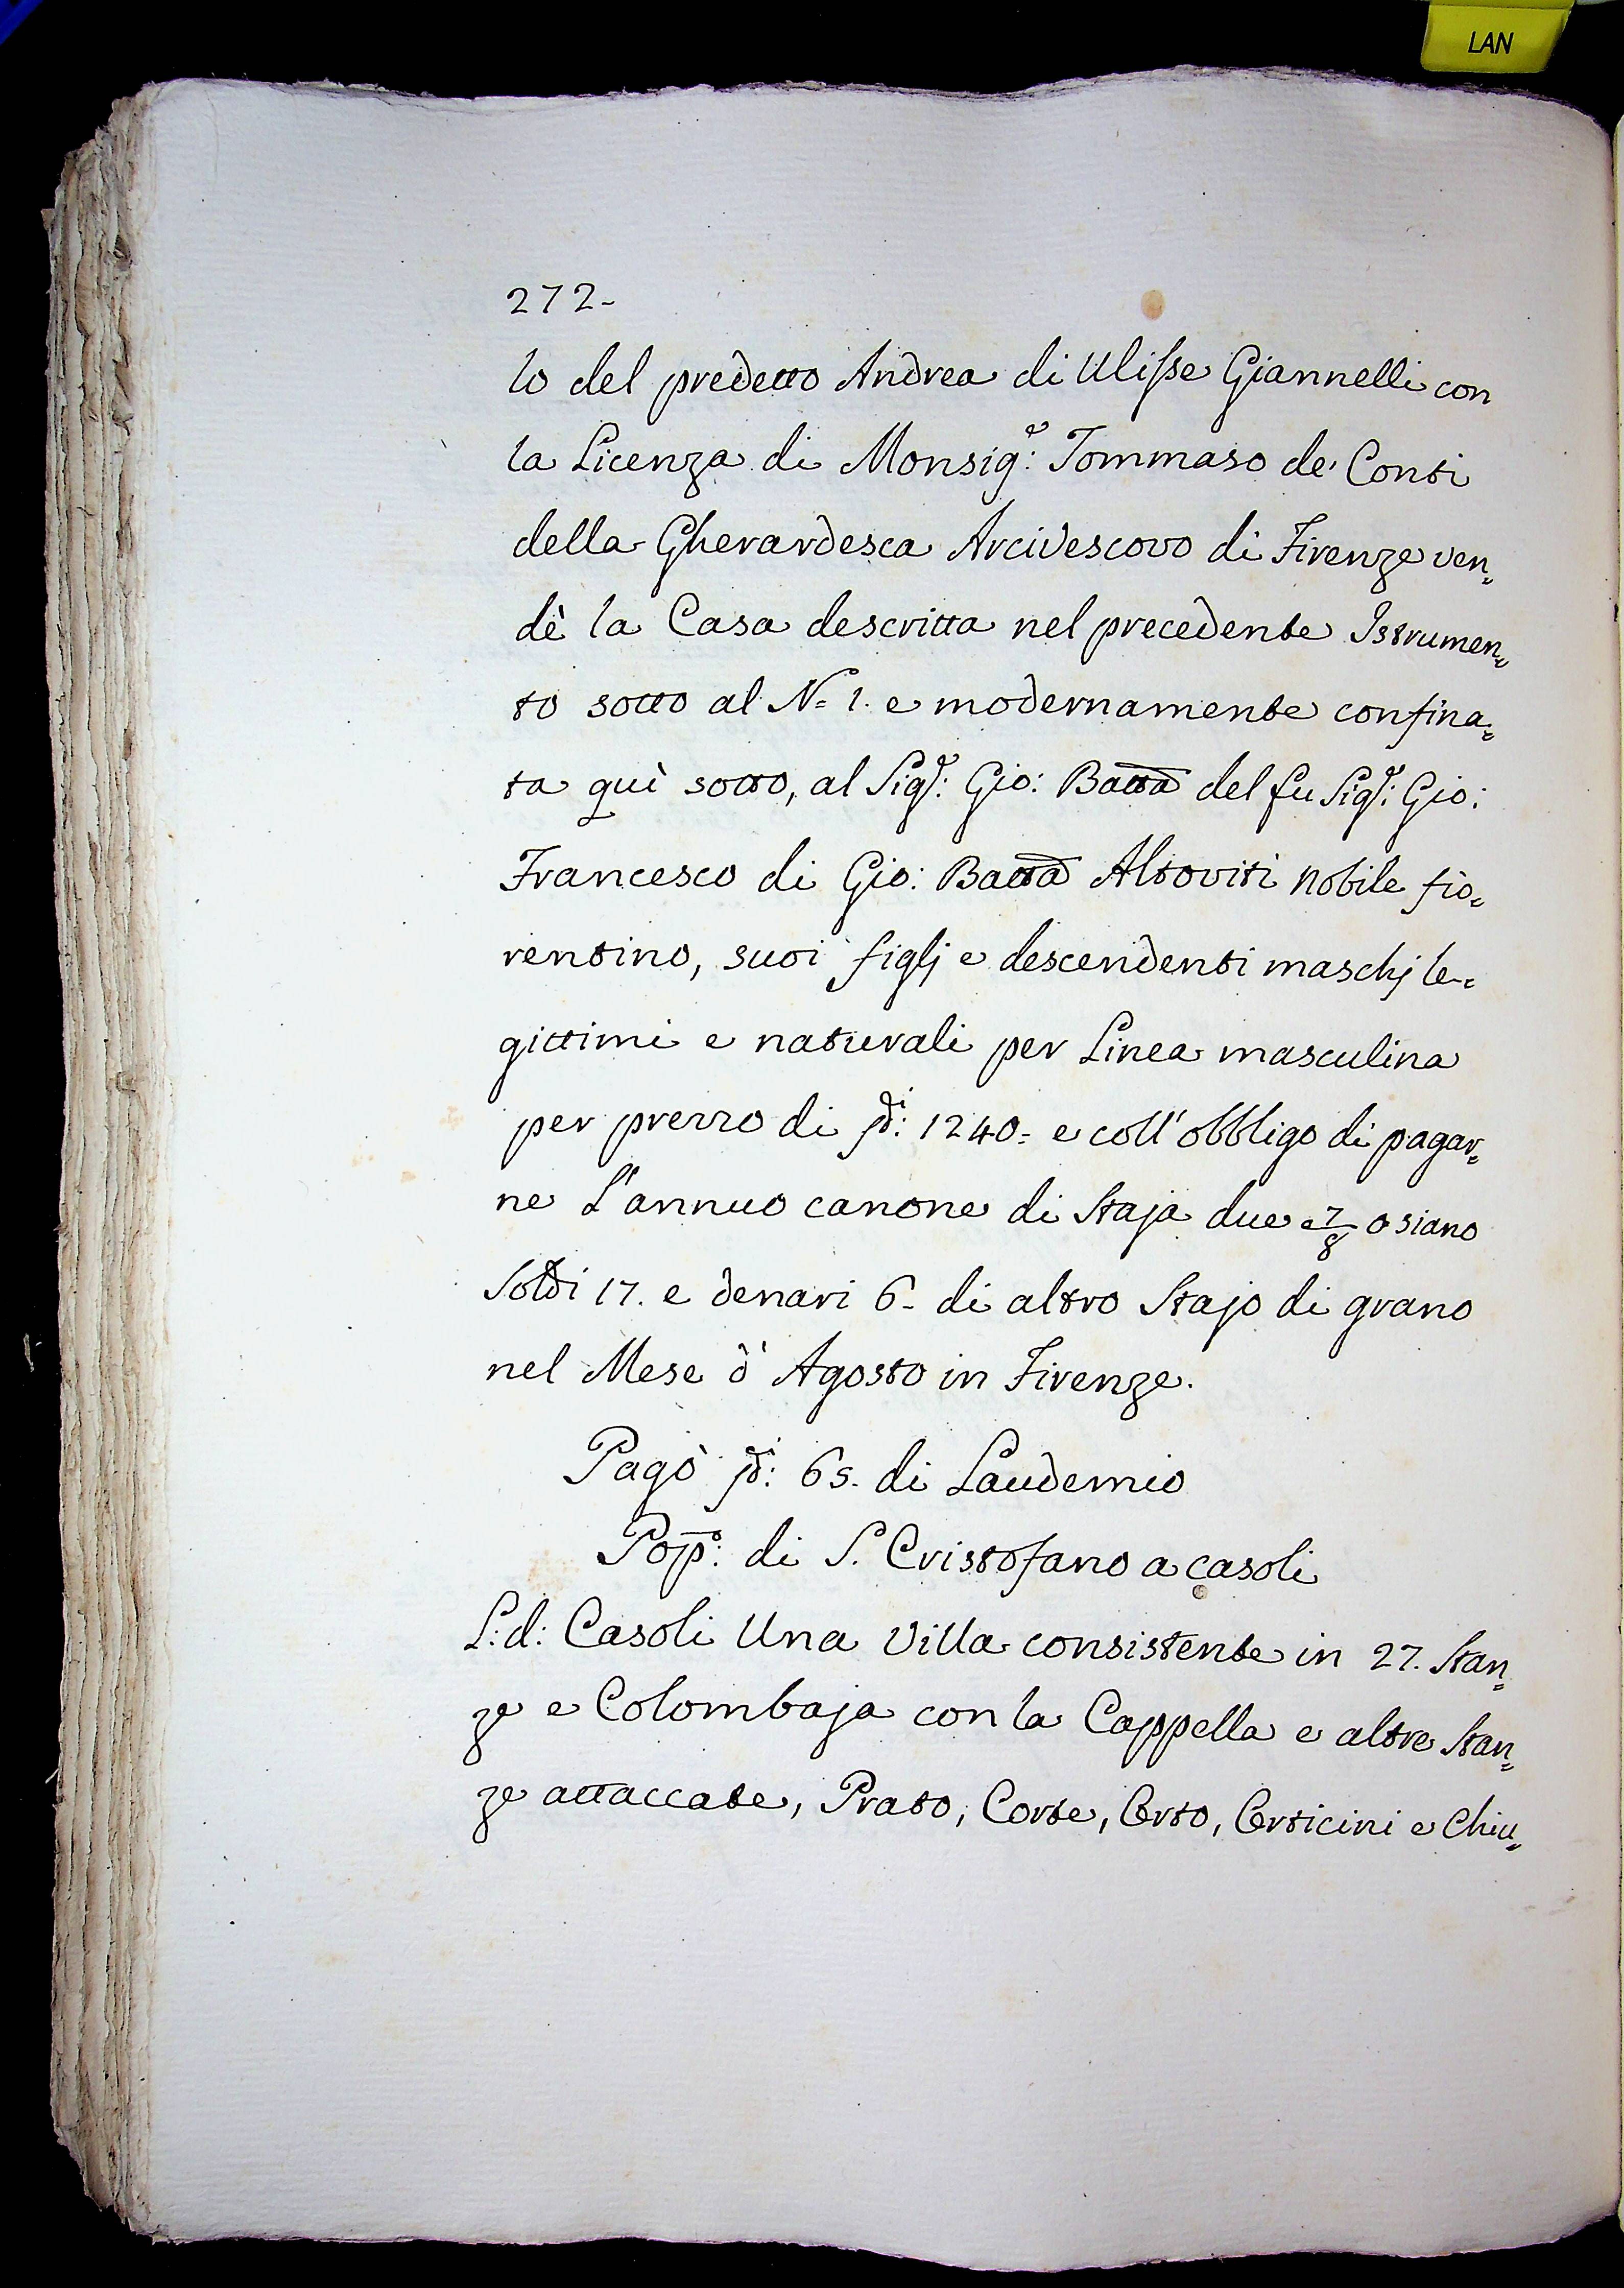 LAN
272-
lo del predetto Andrea di Ulisse Giannelli con
la Licenza di Monsig.e: Tommaso de' Conti
della Gherardesca Arcivescovo di Firenze ven=
dè la Casa descritta nel precedente Istrumen=
to sotto al N= 1. e modernamente confina=
ta quì sotto, al Sig.e: Gio: Batta del fu Sig.e: Gio:
Francesco di Gio: Batta Altoviti Nobile fio=
rentino, suoi figlj e descendenti maschj le=
gittimi e naturali per Linea masculina
per prezzo di ∇di: 1240= e coll'obbligo di pagar=
ne L'annuo canone di Staja due e 7/8 o siano
Soldi 17. e denari 6- di altro Stajo di grano
nel Mese d'Agosto in Firenze.
Pagò ∇di: 65. di Laudemio
Pop.o: di S. Cristofano a casoli
L: d: Casoli Una Villa consistente in 27. Stan=
ze e Colombaja con la Cappella e altre Stan=
ze attaccate, Prato, Corte, Orto, Orticini e Chiu=